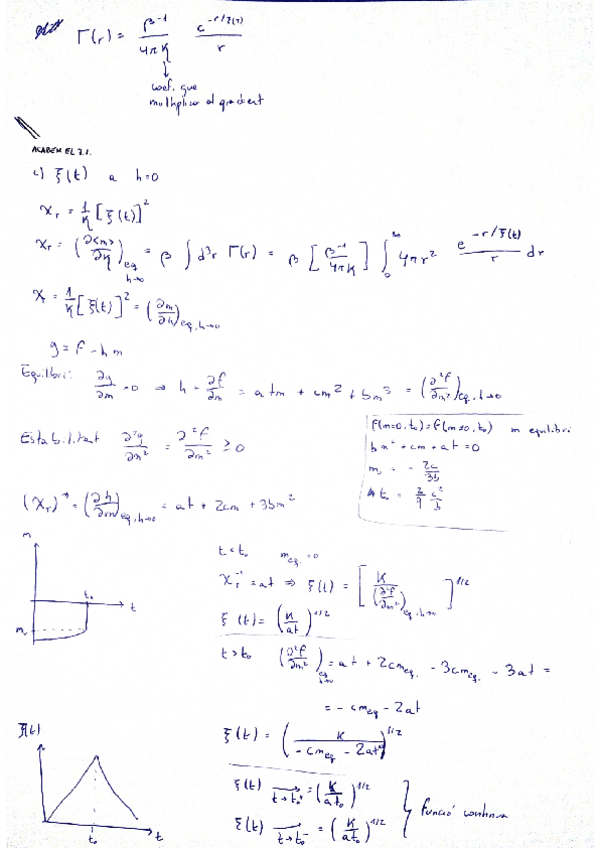 Γ(r) = β⁻¹/4πK e^{-r/ξ(t)}/r
↓
coef. que
multiplica al gradient
ACABEM EL 7.1.
c) ξ(t) a h=0
χ_T = 1/K [ξ(t)]²
χ_T = (∂<m>/∂h)_{eq, h→0} = β ∫ d³r Γ(r) = β [β⁻¹/4πK] ∫₀^∞ 4πr² e^{-r/ξ(t)}/r dr
χ = 1/K [ξ(t)]² = (∂m/∂h)_{eq, h→0}
g = f - hm
Equilibri: ∂g/∂m = 0 ⇒ h = ∂f/∂m = atm + cm² + bm³ = (∂²f/∂m²)_{eq, h→0}
Estabilitat ∂²g/∂m² = ∂²f/∂m² ≥ 0
f(m=0, t₀) = f(m≠0, t₀) m equilibri
bm² + cm + at = 0
m₀ = - 2c/3b
t₀ = 2/9 c²/b
(χ_T)⁻¹ = (∂h/∂m)_{eq, h→0} = at + 2cm + 3bm²
m
t₀
t
m₀
t < t₀ m_{eq} = 0
χ_T⁻¹ = at ⇒ ξ(t) = [K/(∂²f/∂m²)_{eq, h→0}]^{1/2}
ξ(t) = (K/at)^{1/2}
t > t₀ (∂²f/∂m²)_{eq, h→0} = at + 2cm_{eq.} - 3cm_{eq.} - 3at =
= - cm_{eq} - 2at
ξ(t) = (K/-cm_{eq} - 2at)^{1/2}
ξ(t)
t₀
t
ξ(t) →_{t→t₀⁺} = (K/at₀)^{1/2}
ξ(t) →_{t→t₀⁻} = (K/at₀)^{1/2}
} funció contínua